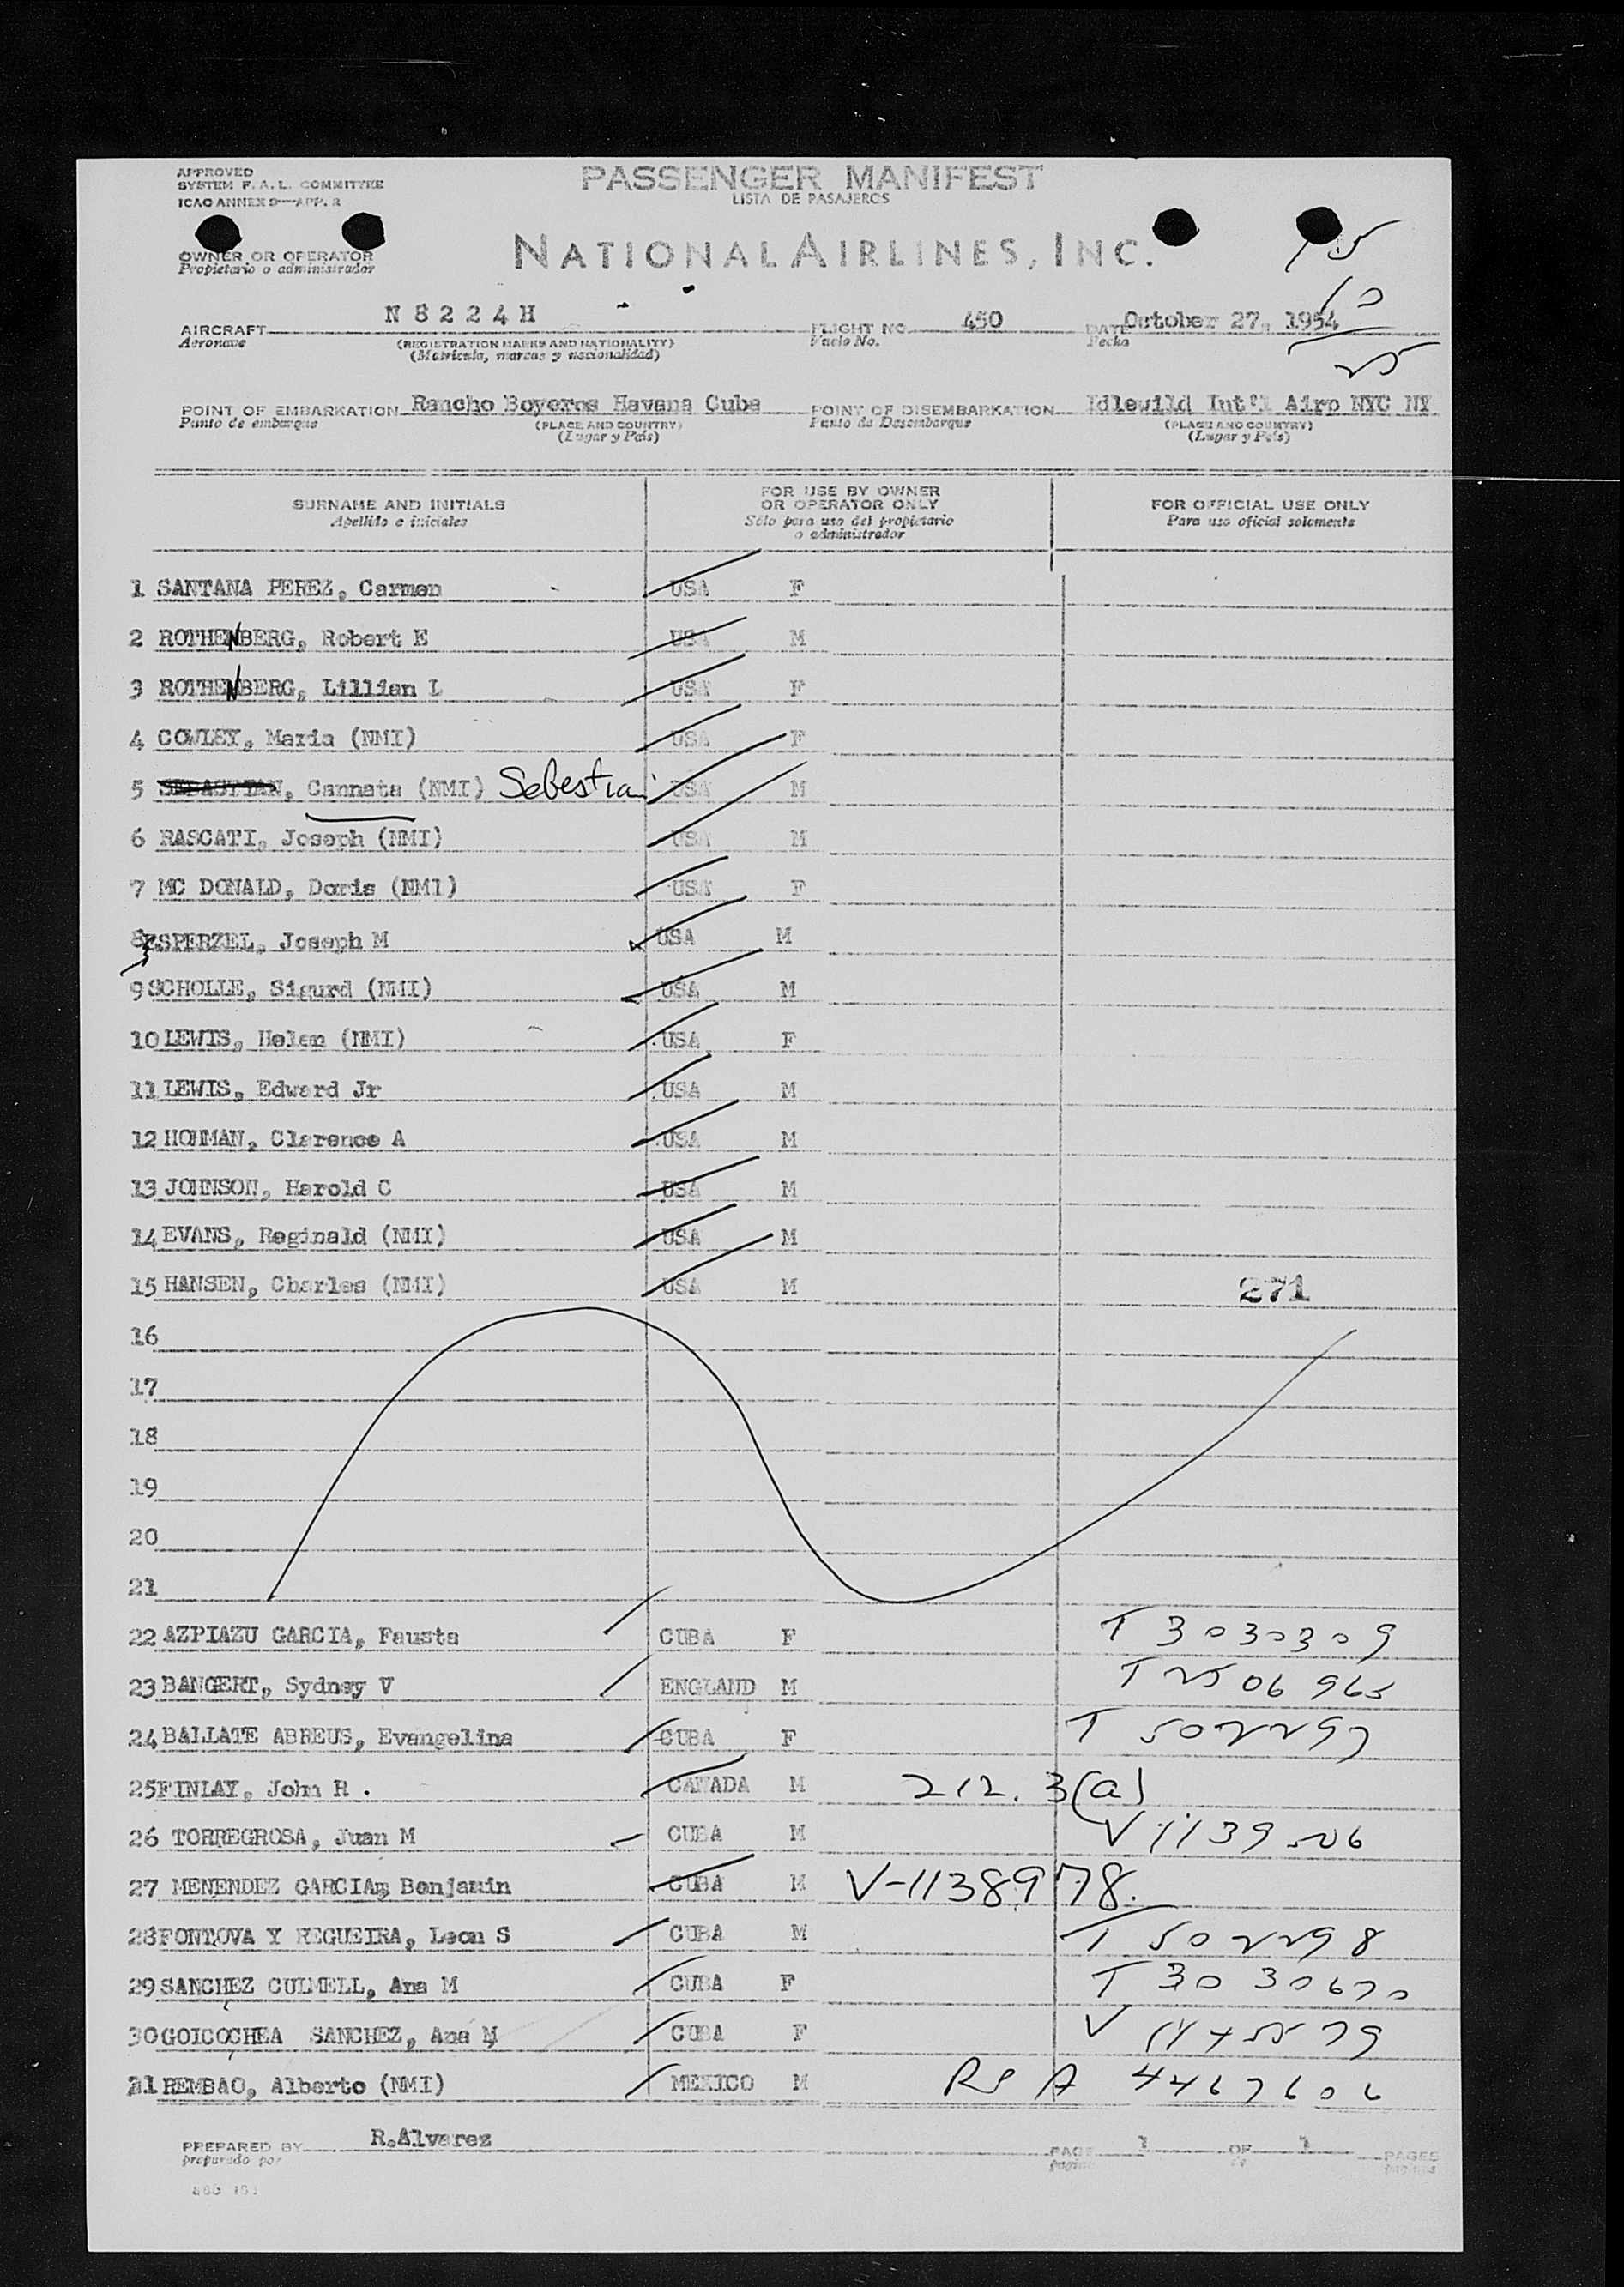 APPROVED
SYSTEM F. A. L. COMMITTEE
ICAO ANNEX 9—APP. 2
PASSENGER MANIFEST
LISTA DE PASAJEROS
OWNER OR OPERATOR
Propietario o administrador
NATIONAL AIRLINES, INC.
15
10
25
AIRCRAFT N 8 2 2 4 H FLIGHT NO. 450 DATE October 27, 1954
Aeronave (REGISTRATION MARKS AND NATIONALITY) Vuelo No. Fecha
(Matricula, marcas y nacionalidad)
POINT OF EMBARKATION Rancho Boyeros Havana Cuba POINT OF DISEMBARKATION Idlewild Int'l Airp NYC NY
Punto de embarque (PLACE AND COUNTRY) Punto de Desembarque (PLACE AND COUNTRY)
(Lugar y País) (Lugar y País)
SURNAME AND INITIALS FOR USE BY OWNER OR OPERATOR ONLY FOR OFFICIAL USE ONLY
Apellido e iniciales Sólo para uso del propietario o administrador Para uso oficial solamente
1 SANTANA PEREZ, Carmen USA F
2 ROTHENBERG, Robert E USA M
3 ROTHENBERG, Lillian L USA F
4 COWLEY, Maria (NMI) USA F
5 SEBASTIAN, Cannata (NMI) Sebastian USA M
6 RASCATI, Joseph (NMI) USA M
7 MC DONALD, Doris (NMI) USA F
8 SPERZEL, Joseph M USA M
9 SCHOLLE, Sigurd (NMI) USA M
10 LEWIS, Helen (NMI) USA F
11 LEWIS, Edward Jr USA M
12 HOHMAN, Clarence A USA M
13 JOHNSON, Harold C USA M
14 EVANS, Reginald (NMI) USA M
15 HANSEN, Charles (NMI) USA M 271
16
17
18
19
20
21
22 AZPIAZU GARCIA, Fausta CUBA F T 3030309
23 BANGERT, Sydney V ENGLAND M T 2506965
24 BALLATE ABREUS, Evangelina CUBA F T 5022297
25 FINLAY, John R . CANADA M 212.3(a)
26 TORREGROSA, Juan M CUBA M V 1139506
27 MENENDEZ GARCIA, Benjamin CUBA M V-11389178.
28 FONTOVA Y REGUEIRA, Leon S CUBA M T 5022298
29 SANCHEZ CULMELL, Ana M CUBA F T 3030670
30 GOICOCHEA SANCHEZ, Ana M CUBA F V
31 REMBAO, Alberto (NMI) MEXICO M A 4467606
PREPARED BY R.Alvarez PAGE 1 OF 1 PAGES
preparado por pagina de paginas